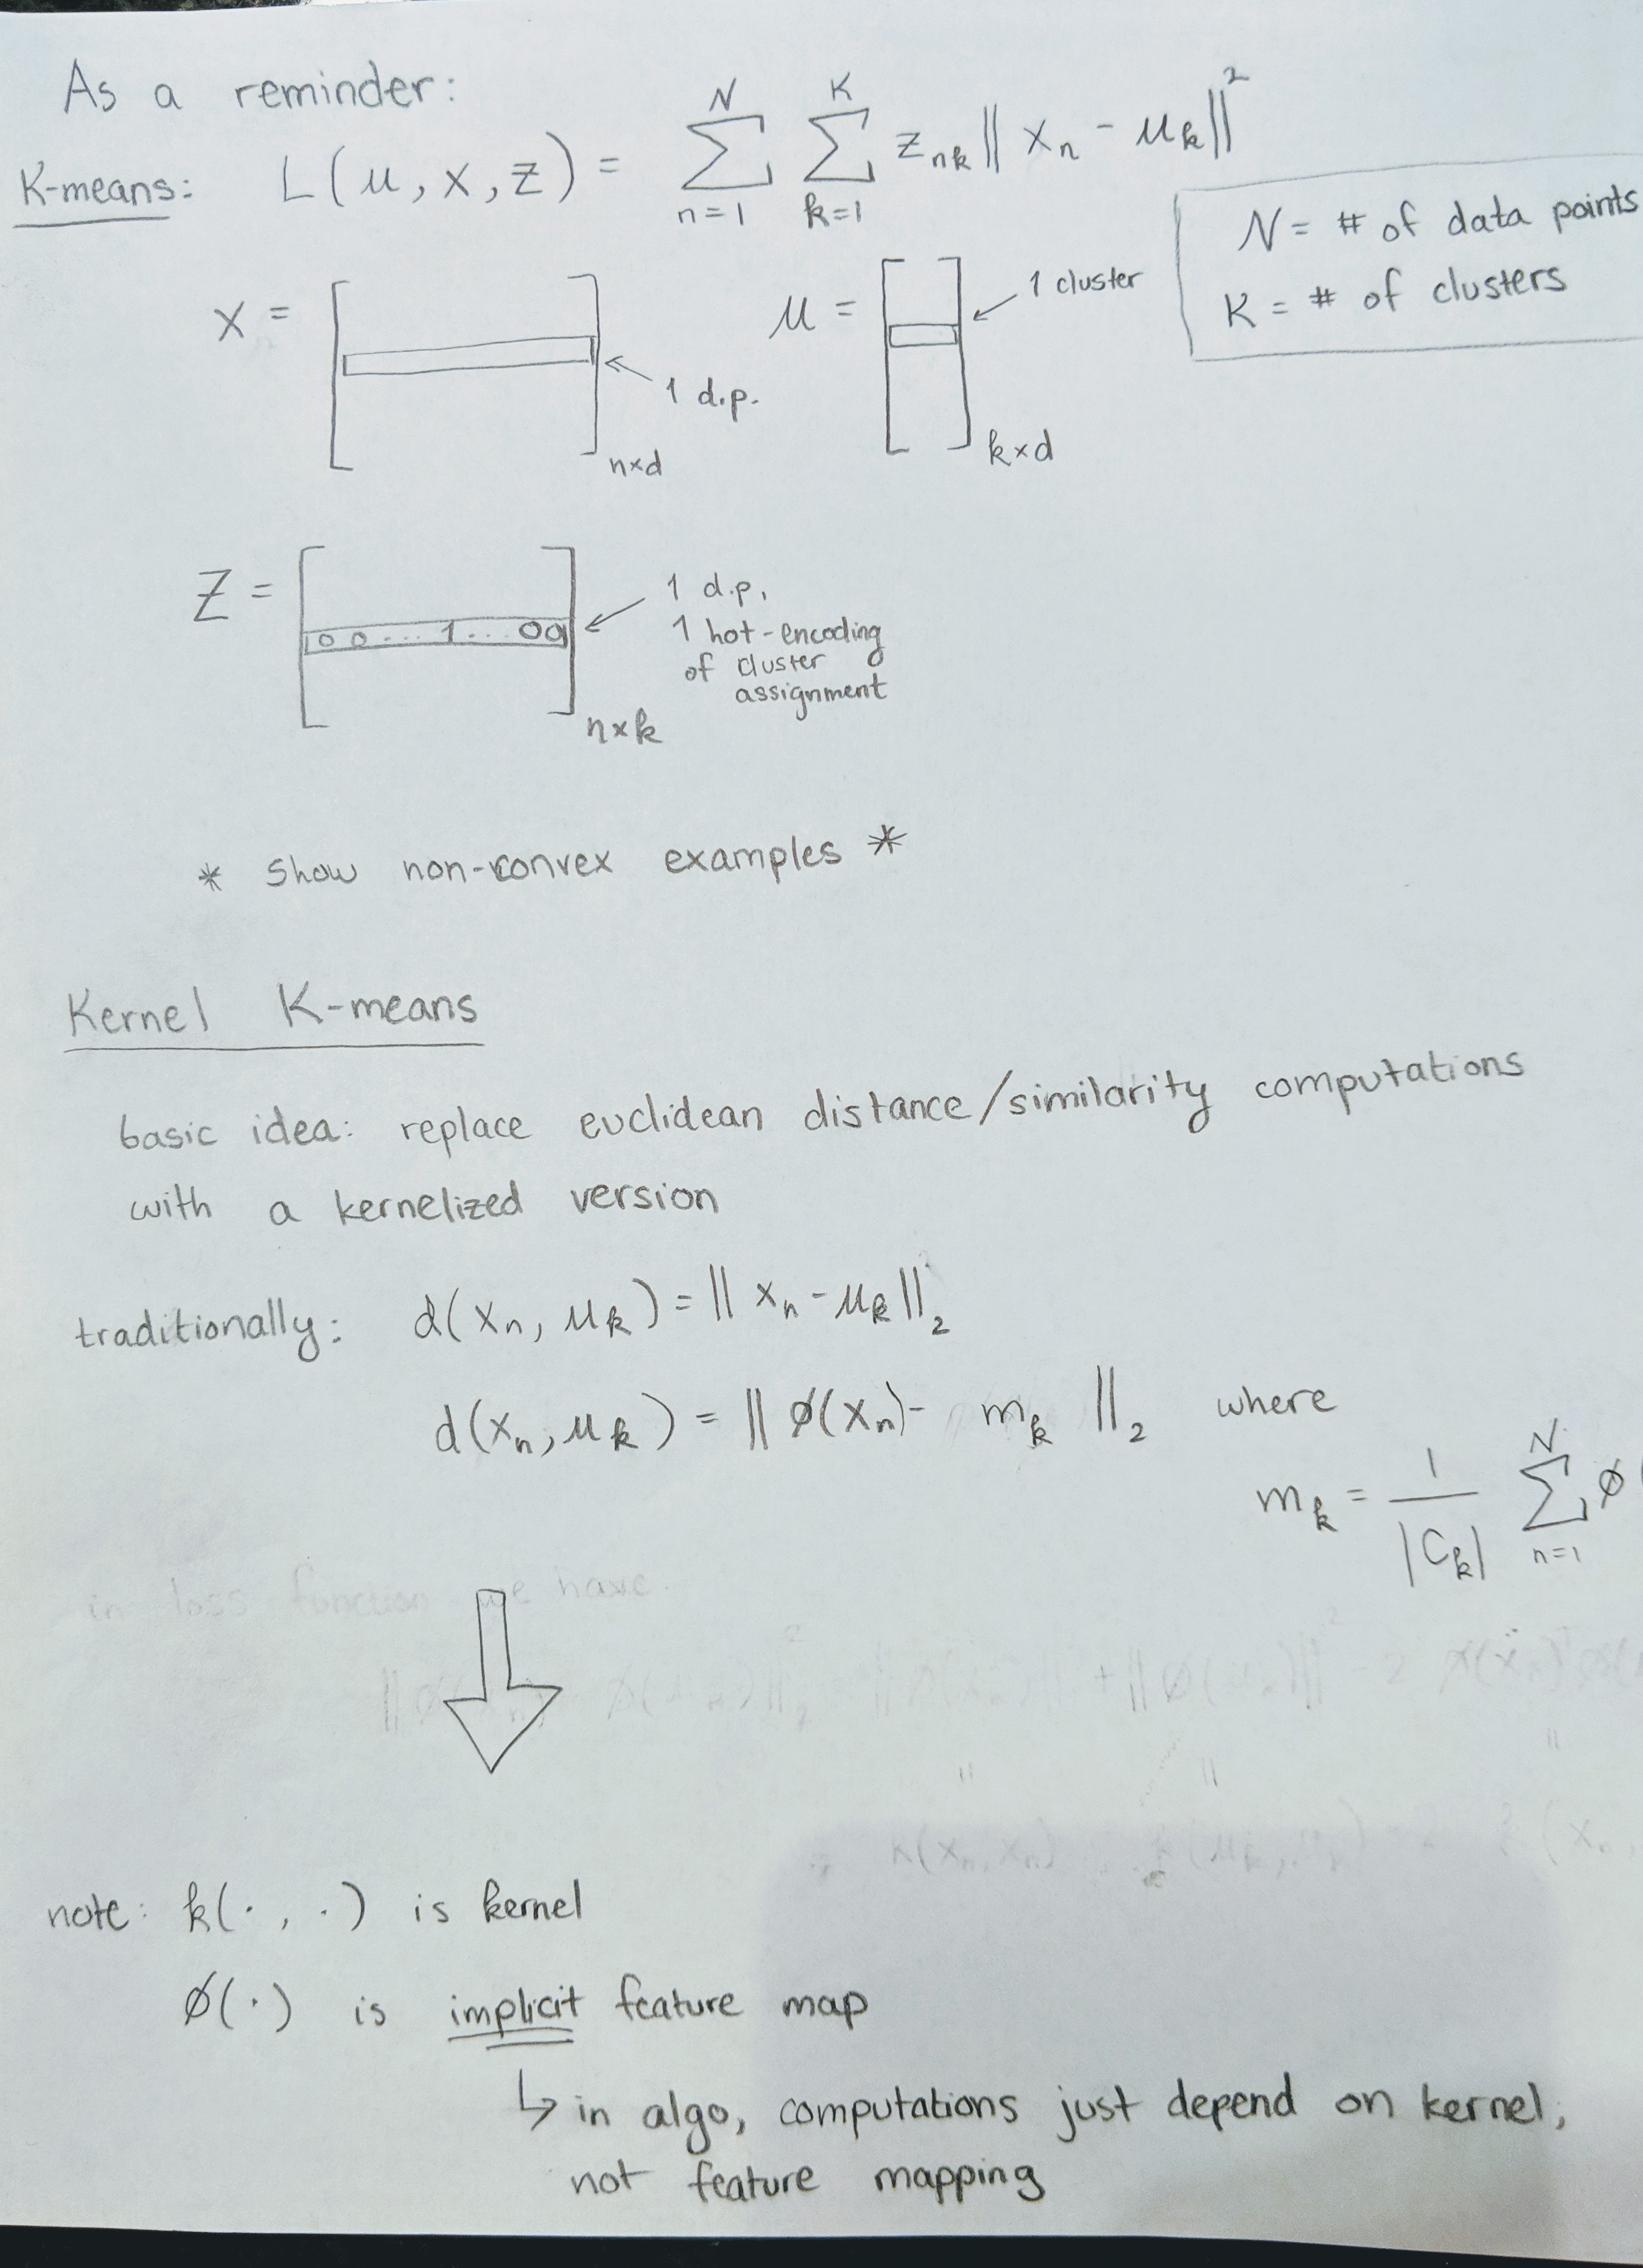 As a reminder:
K-means: L(μ, x, z) = N∑n=1 K∑k=1 z_nk || x_n - μ_k ||²
N = # of data points
K = # of clusters
X = [ ] n×d
1 d.p.
μ = [ ] k×d
1 cluster
Z = [ 0 0 ... 1 ... 0 0 ] n×k
1 d.p,
1 hot-encoding
of cluster
assignment
* Show non-convex examples *
Kernel K-means
basic idea: replace euclidean distance/similarity computations
with a kernelized version
traditionally: d(x_n, μ_k) = || x_n - μ_k ||_2
d(x_n, μ_k) = || ϕ(x_n) - m_k ||_2 where
m_k = 1/|C_k| N∑n=1 ϕ(
in loss function we have
note: k(·, ·) is kernel
ϕ(·) is implicit feature map
↳ in algo, computations just depend on kernel,
not feature mapping